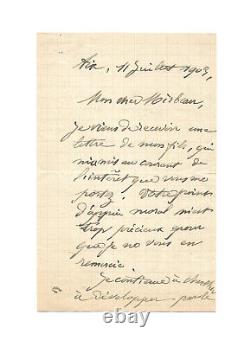 Aix, 11 Juillet 1903,
Mon cher Mirbeau,
Je viens de recevoir une
lettre de mon fils, qui
m'a mis au courant de
l'intérêt que vous me
portez. Votre
d'appui moral m'est
trop précieux pour
que je ne vous en
remercie
je continue à
à développer par le